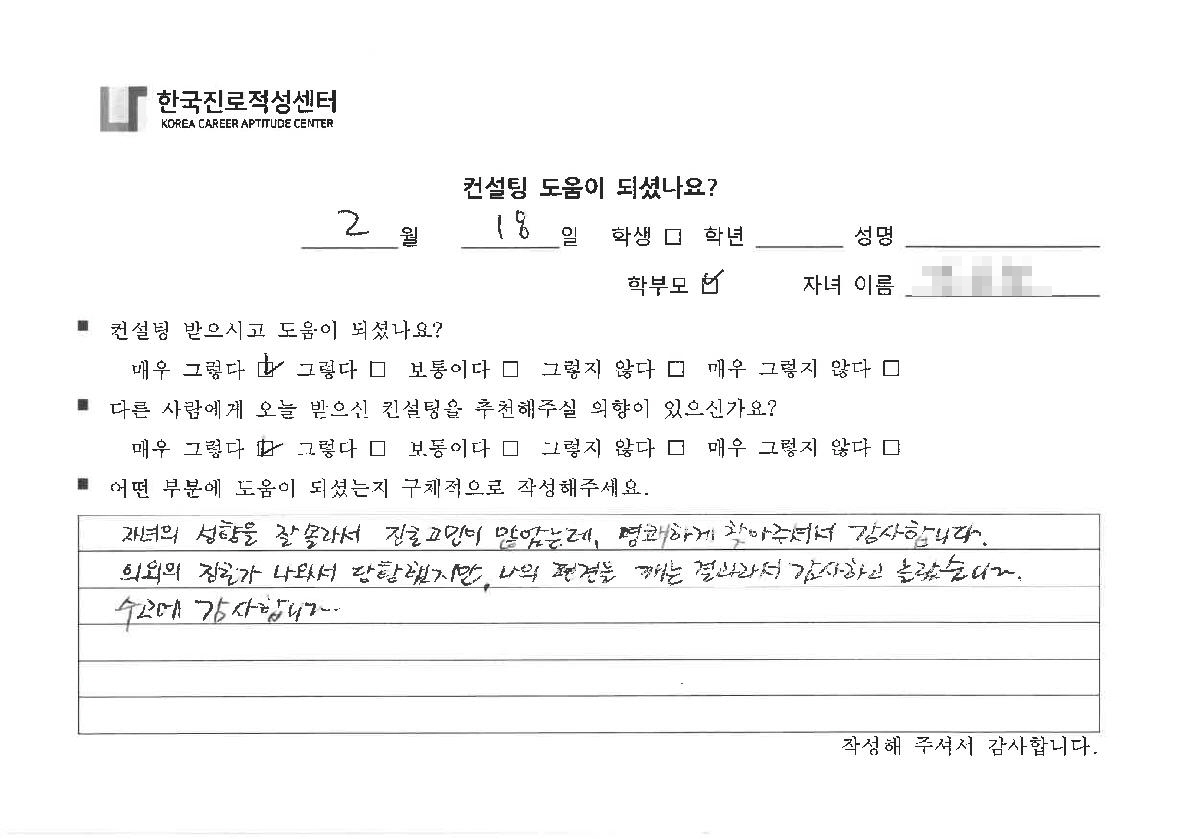 한국진로적성센터
KOREA CAREER APTITUDE CENTER
컨설팅 도움이 되셨나요?
2 월 18 일 학생 □ 학년 성명
학부모 ☑ 자녀 이름
■ 컨설팅 받으시고 도움이 되셨나요?
매우 그렇다 ☑ 그렇다 □ 보통이다 □ 그렇지 않다 □ 매우 그렇지 않다 □
■ 다른 사람에게 오늘 받으신 컨설팅을 추천해주실 의향이 있으신가요?
매우 그렇다 ☑ 그렇다 □ 보통이다 □ 그렇지 않다 □ 매우 그렇지 않다 □
■ 어떤 부분에 도움이 되셨는지 구체적으로 작성해주세요.
자녀의 성향을 잘 몰라서 진로고민이 많았는데, 명쾌하게 찾아주셔서 감사합니다.
의외의 진로가 나와서 당황했지만, 나의 편견을 깨는 결과라서 감사하고 놀랐습니다.
수고에 감사합니다.
작성해 주셔서 감사합니다.